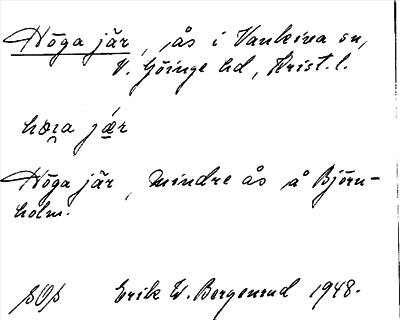 Höga jär, ås i Vankiva sn,
V. Göinge hd, Krist. l.
Höga jär, mindre ås å Björn-
holm.
Erik W. Bergenrud 1948.